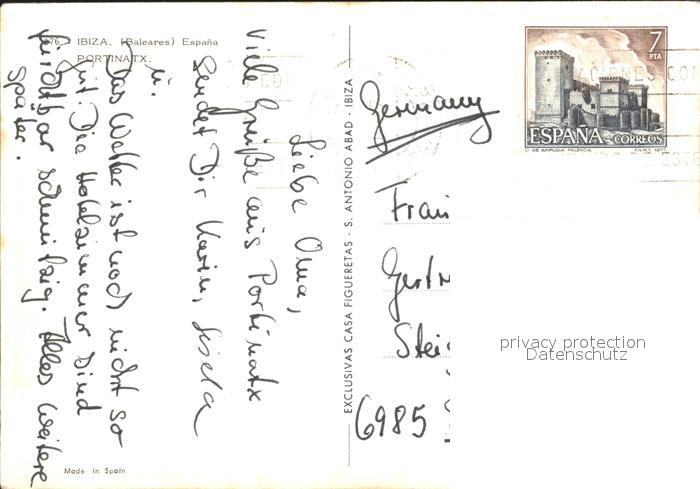 876 IBIZA. (Baleares) España
PORTINATX.
Liebe Oma,
Viele Grüße aus Portinatx
sendet Dir Karin, Gisela
u.
Das Wetter ist noch nicht so
gut. Die Hotelzimmer sind
furchtbar schmutzig. Alles weitere
später.
Made in Spain
EXCLUSIVAS CASA FIGUERETAS - S. ANTONIO ABAD - IBIZA
7
PTA
ESPAÑA CORREOS
Cº DE AMPUDIA PALENCIA F.N.M.T. 1977
Germany
Frau
Gertr
Stei
6985
privacy protection
Datenschutz